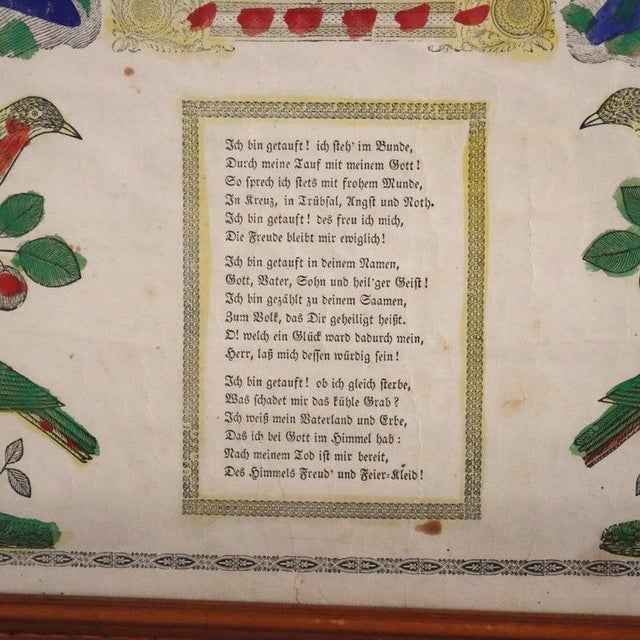 Ich bin getauft! ich steh' im Bunde,
Durch meine Tauf mit meinem Gott!
So sprech ich stets mit frohem Munde,
In Kreuz, in Trübsal, Angst und Noth.
Ich bin getauft! des freu ich mich,
Die Freude bleibt mir ewiglich!
Ich bin getauft in deinem Namen,
Gott, Vater, Sohn und heil'ger Geist!
Ich bin gezählt zu deinem Saamen,
Zum Volk, das Dir geheiligt heißt.
O! welch ein Glück ward dadurch mein,
Herr, laß mich dessen würdig sein!
Ich bin getauft! ob ich gleich sterbe,
Was schadet mir das kühle Grab?
Ich weiß mein Vaterland und Erbe,
Das ich bei Gott im Himmel hab:
Nach meinem Tod ist mir bereit,
Des Himmels Freud' und Feier-Kleid!